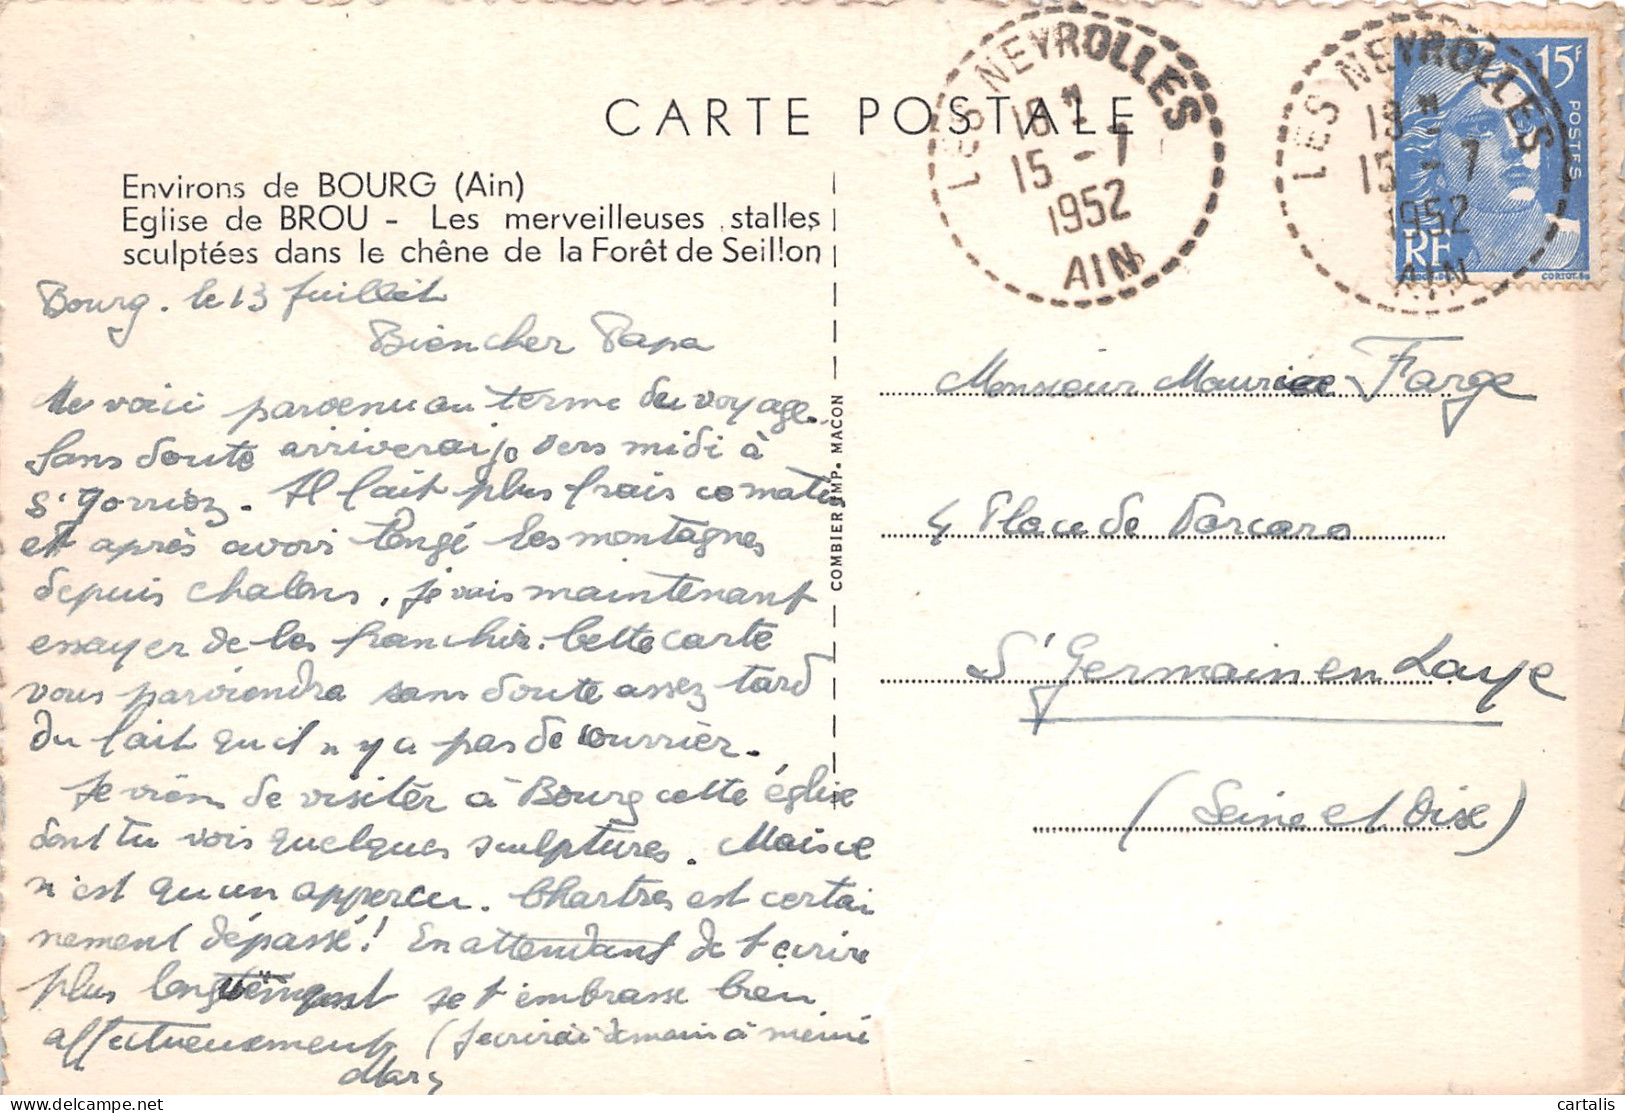 CARTE POSTALE
Environs de BOURG (Ain)
Eglise de BROU - Les merveilleuses stalles
sculptées dans le chêne de la Forêt de Seillon
Bourg. le 13 Juillet
Bien cher Papa
Me voici parvenu au terme du voyage.
Sans doute arriverai je vers midi à
St Jorrioz. Il fait plus frais ce matin
et après avoir longé les montagnes
depuis Chalons, je vais maintenant
essayer de les franchir. Cette carte
vous parviendra sans doute assez tard
du fait qu'il n'y a pas de courrier.
Je viens de visiter à Bourg cette église
dont tu vois quelques sculptures. Mais ce
n'est qu'un apperçu. Chartres est certai
nement dépassé! En attendant de t'écrire
plus longuement je t'embrasse bien
affectueusement (J'écrirai demain à mémé
COMBIER IMP. MACON
LES NEYROLLES
18 H
15 - 7
1952
AIN
LES NEYROLLES
18 H
15 - 7
1952
AIN
15F
POSTES
RF
CORTOT
Monsieur Maurice Farge
4 Place de
St Germain en Laye
(Seine et Oise)
cartalis